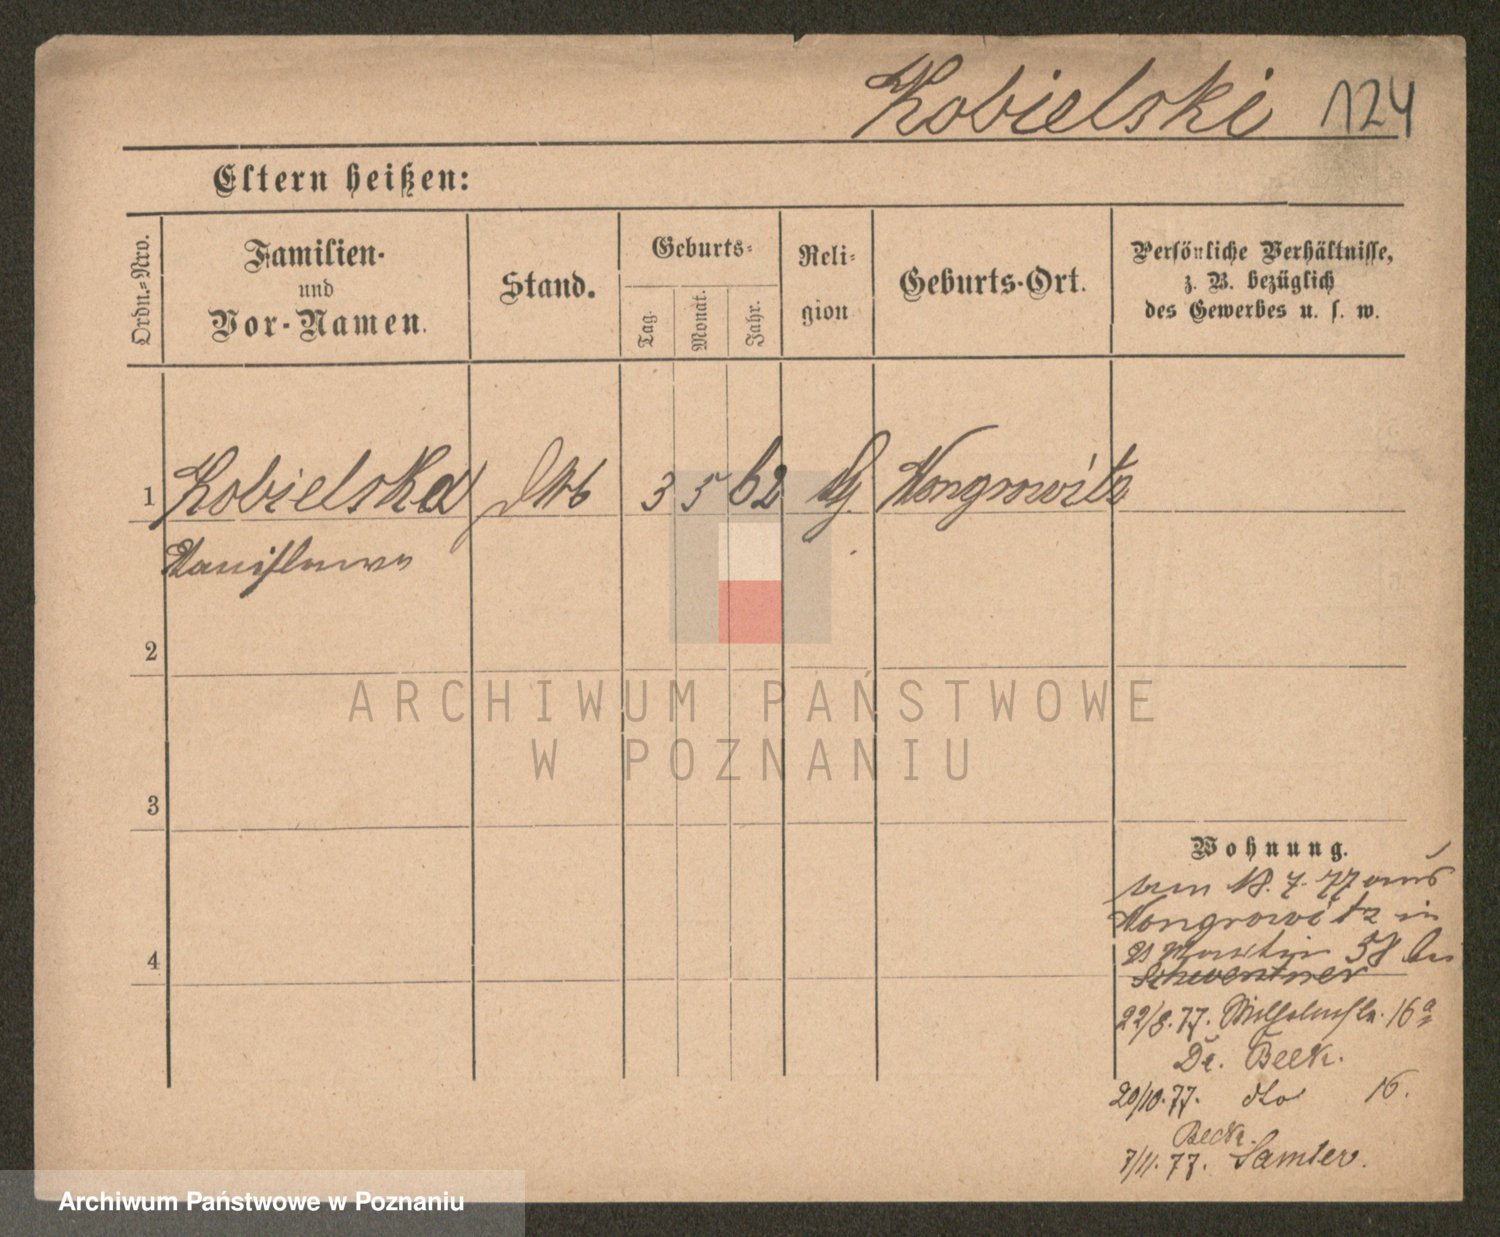 Kobielski 124
Eltern heißen:
Ordn.-Nro.
Familien-
und
Vor-Namen.
Stand.
Geburts-
Tag.
Monat.
Jahr.
Reli-
gion
Geburts-Ort.
Persönliche Verhältnisse,
z. B. bezüglich
des Gewerbes u. s. w.
1 Kobielska 3 5 62 Wongrowitz
Stanislawa
2
3
4
Wohnung.
18. 7. 77 aus
Wongrowitz in
St Martin 58 bei
22/8. 77. Wilhelmstr. 16a
Dr. Beek.
20/10. 77. dto 16.
Beek.
7/11. 77. Samter.
ARCHIWUM PAŃSTWOWE
W POZNANIU
Archiwum Państwowe w Poznaniu